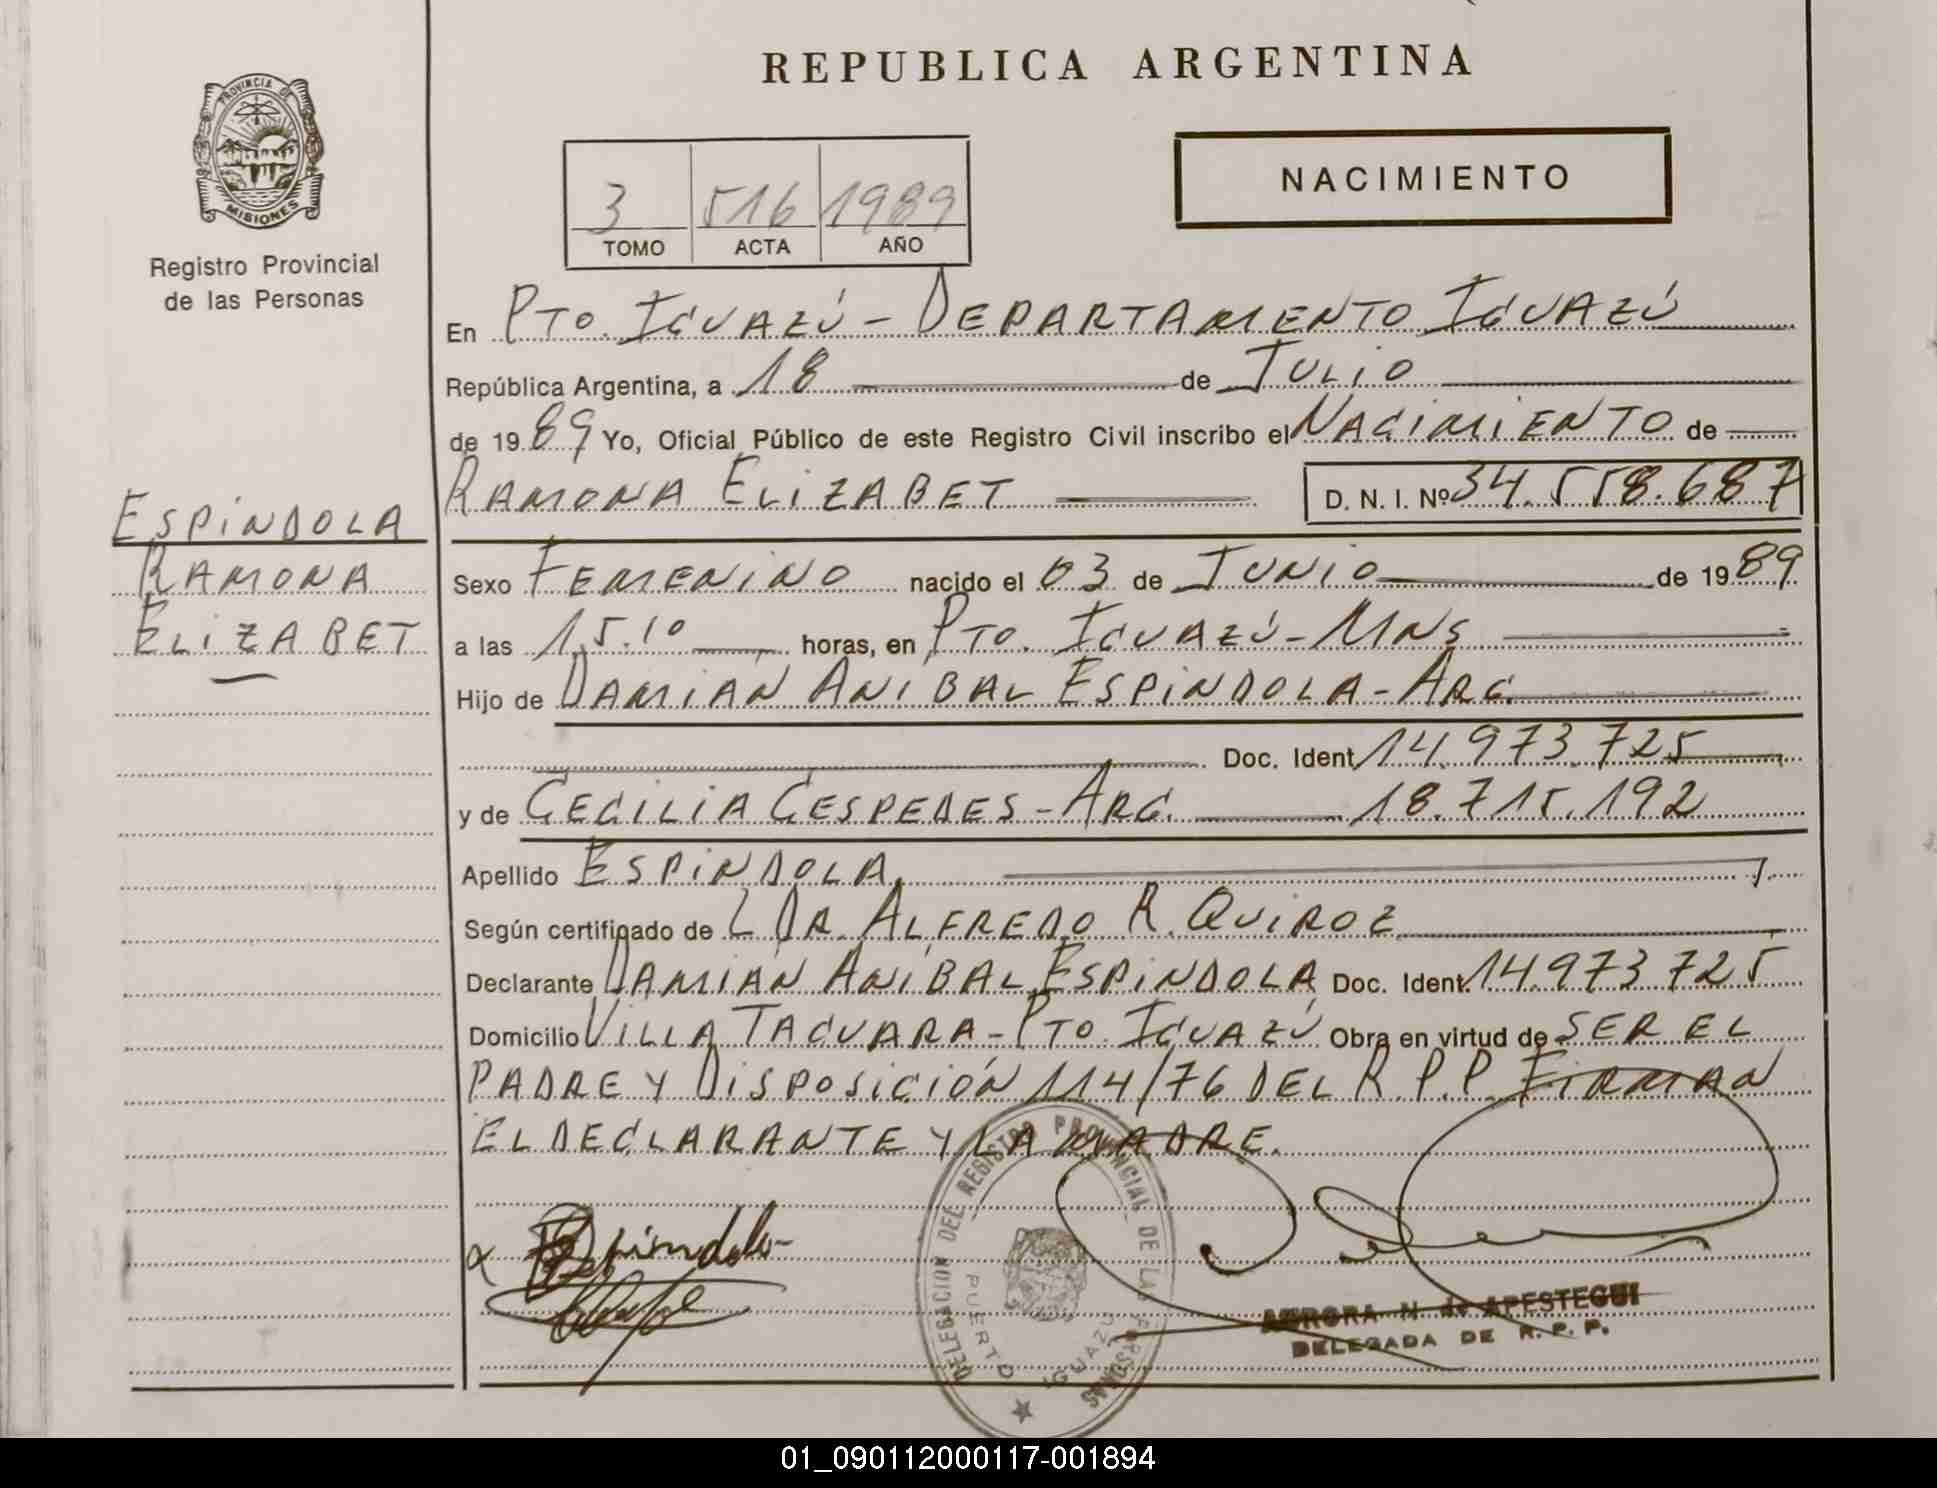 REPUBLICA ARGENTINA
PROVINCIA DE
MISIONES
Registro Provincial
de las Personas
NACIMIENTO
3 516 1989
TOMO ACTA AÑO
En Pto. Iguazú - Departamento Iguazú
República Argentina, a 18 de Julio
de 1989 Yo, Oficial Público de este Registro Civil inscribo el Nacimiento de
Ramona Elizabet D. N. I. Nº 34.558.687
Espíndola
Ramona
Elizabet
Sexo Femenino nacido el 03 de Junio de 1989
a las 15.10 horas, en Pto. Iguazú - Mns
Hijo de Damián Aníbal Espíndola - Arg.
Doc. Ident. 14.973.725
y de Cecilia Cespedes - Arg. 18.715.192
Apellido Espíndola
Según certificado de L Dr. Alfredo R. Quiroz
Declarante Damián Aníbal Espíndola Doc. Ident. 14.973.725
Domicilio Villa Tacuara - Pto. Iguazú Obra en virtud de ser el
padre y Disposición 114/76 del R.P.P. Firman
el declarante y la madre.
Espindola
DELEGACION DEL REGISTRO PROVINCIAL DE LAS PERSONAS
PUERTO IGUAZU
AURORA N. de APESTEGUI
DELEGADA DE R. P. P.
01_090112000117-001894